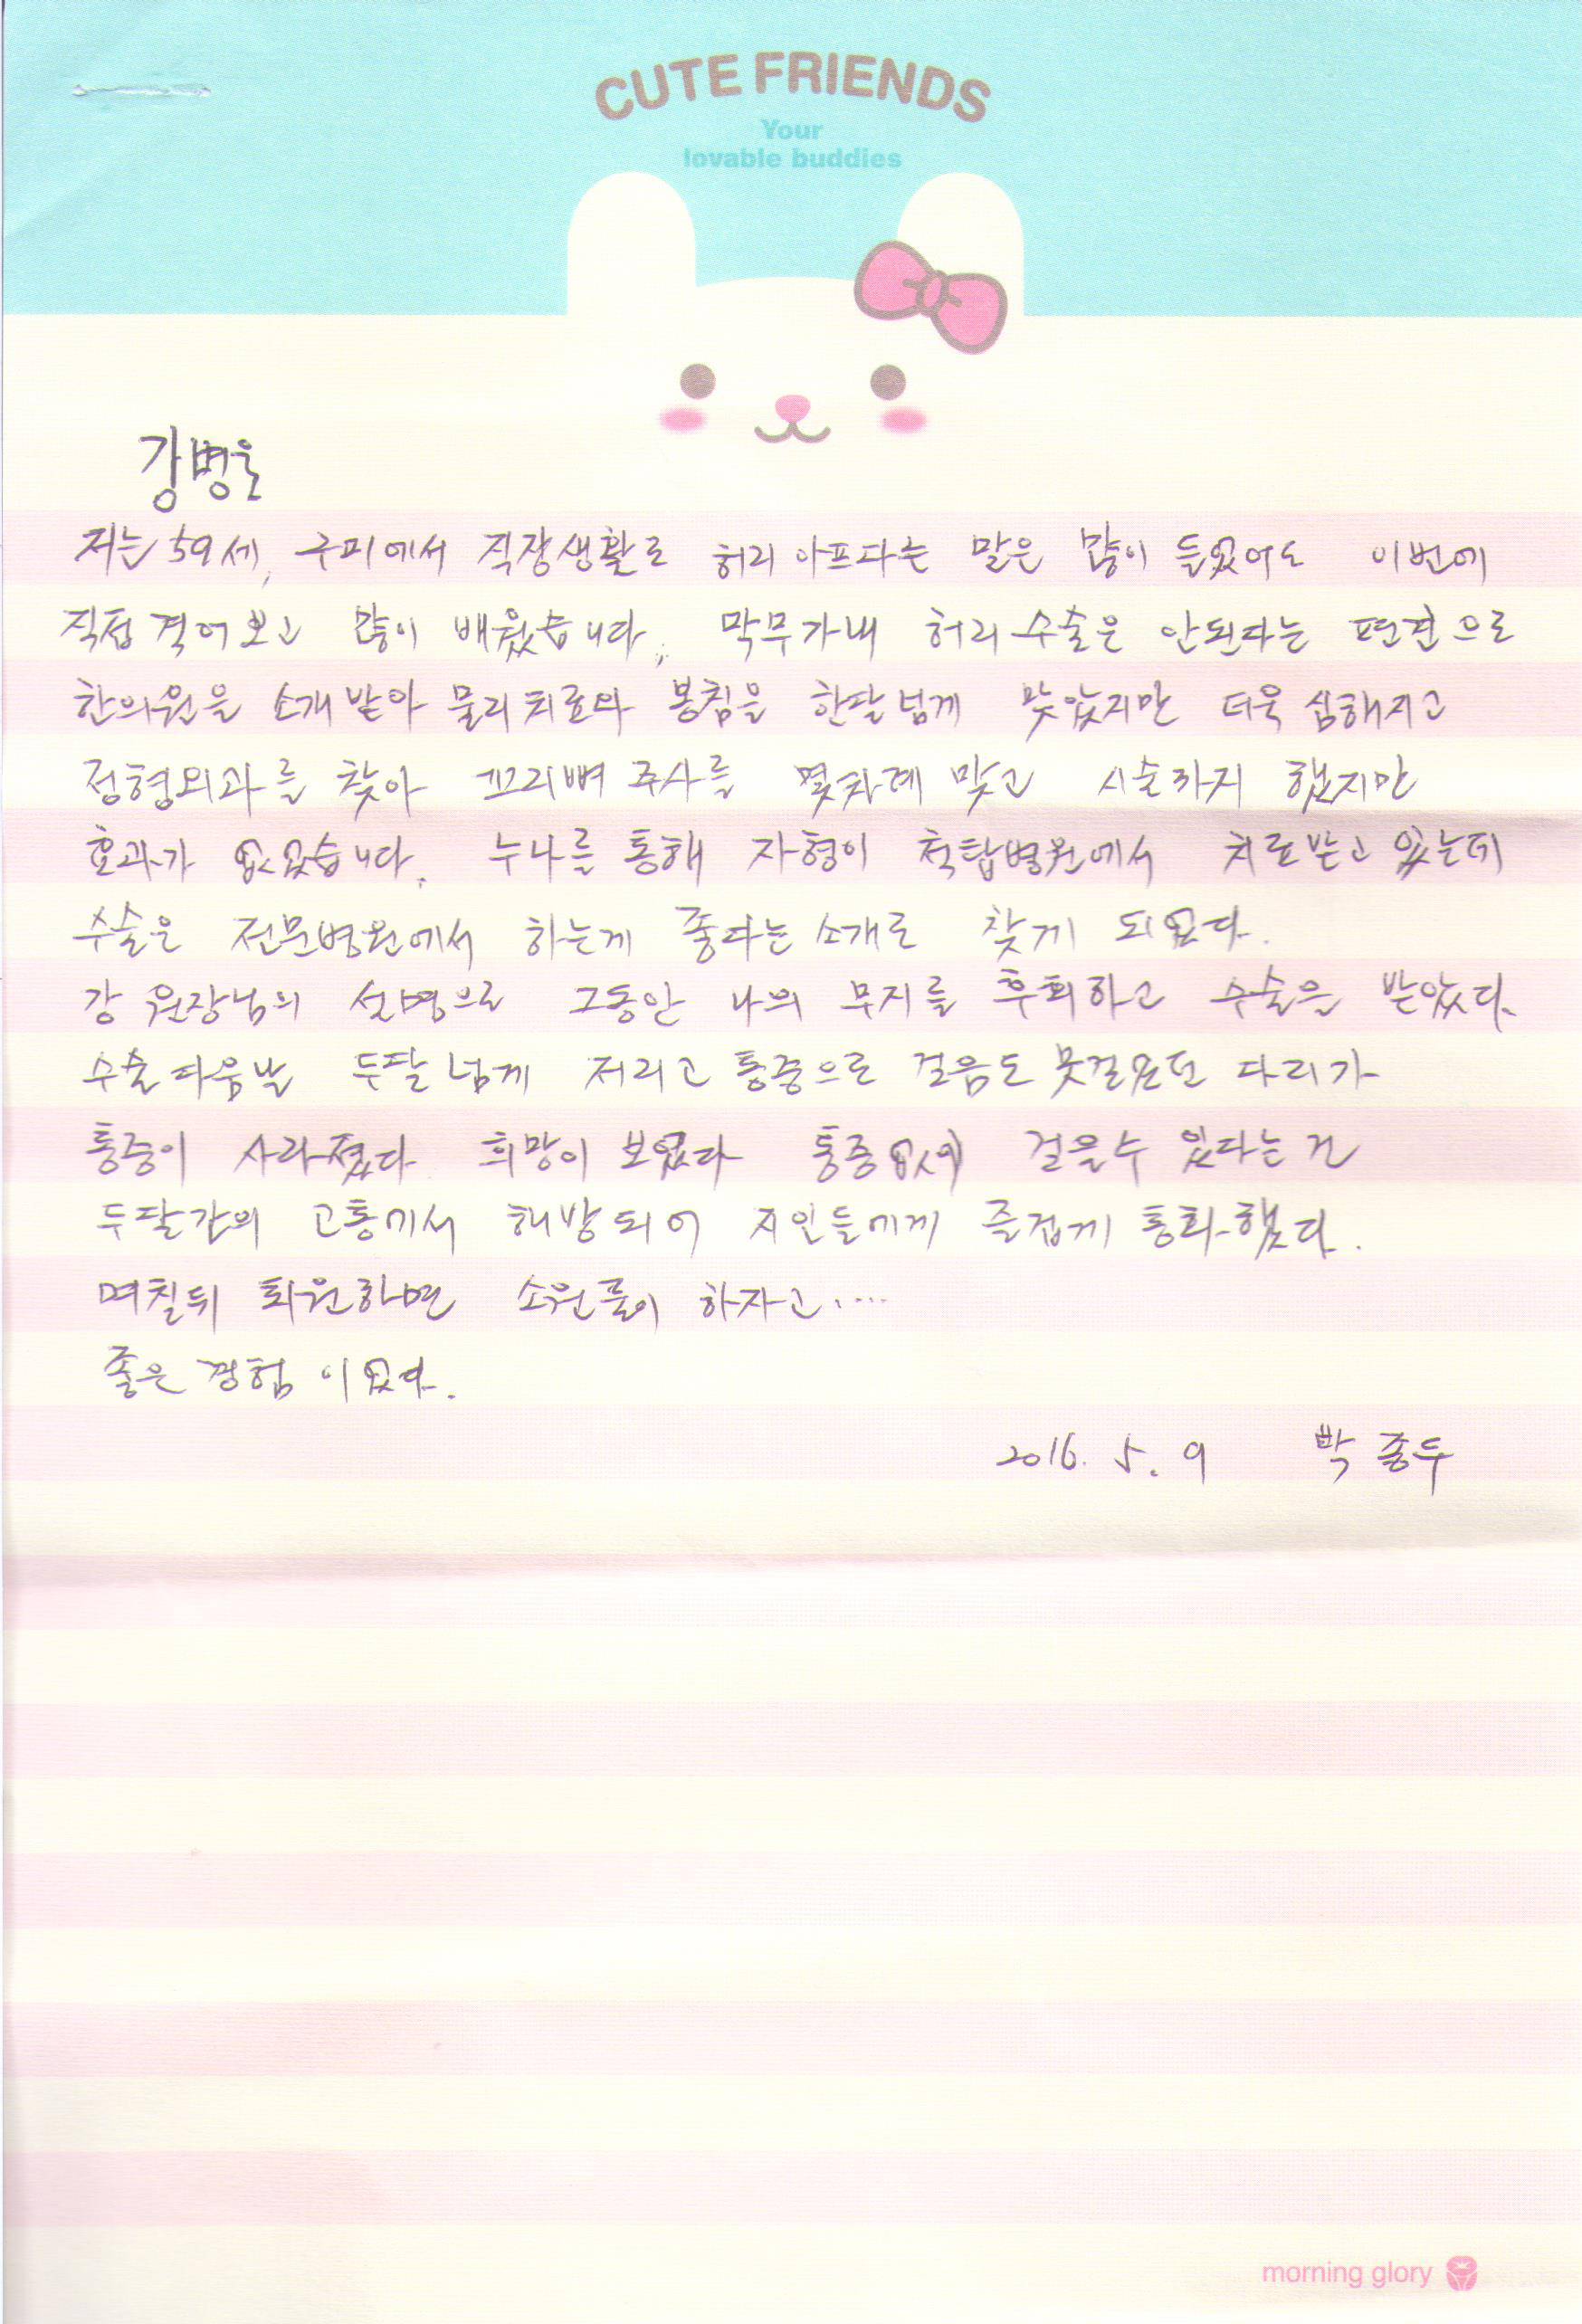 CUTE FRIENDS
Your
lovable buddies
강병을
저는 59세, 구미에서 직장생활로 허리 아프다는 말은 많이 들었어도 이번에
직접 격어보고 많이 배웠습니다. 막무가내 허리수술은 안된다는 편견으로
한의원을 소개받아 물리치료와 봉침을 한달넘게 맞았지만 더욱 심해지고
정형외과를 찾아 꼬리뼈 주사를 몇차례 맞고 시술까지 했지만
효과가 없었습니다. 누나를 통해 자형이 척탑병원에서 치료받고 있는데
수술은 전문병원에서 하는게 좋다는 소개로 찾게 되었다.
강 원장님의 설명으로 그동안 나의 무지를 후회하고 수술은 받았다.
수술다음날 두달넘게 저리고 통증으로 걸음도 못걸었던 다리가
통증이 사라졌다 희망이 보였다 통증없이 걸을수 있다는건
두달간의 고통에서 해방되어 지인들에게 즐겁게 통화했다.
며칠뒤 퇴원하면 소원풀이 하자고....
좋은 경험 이었다.
2016. 5. 9 박종두
morning glory